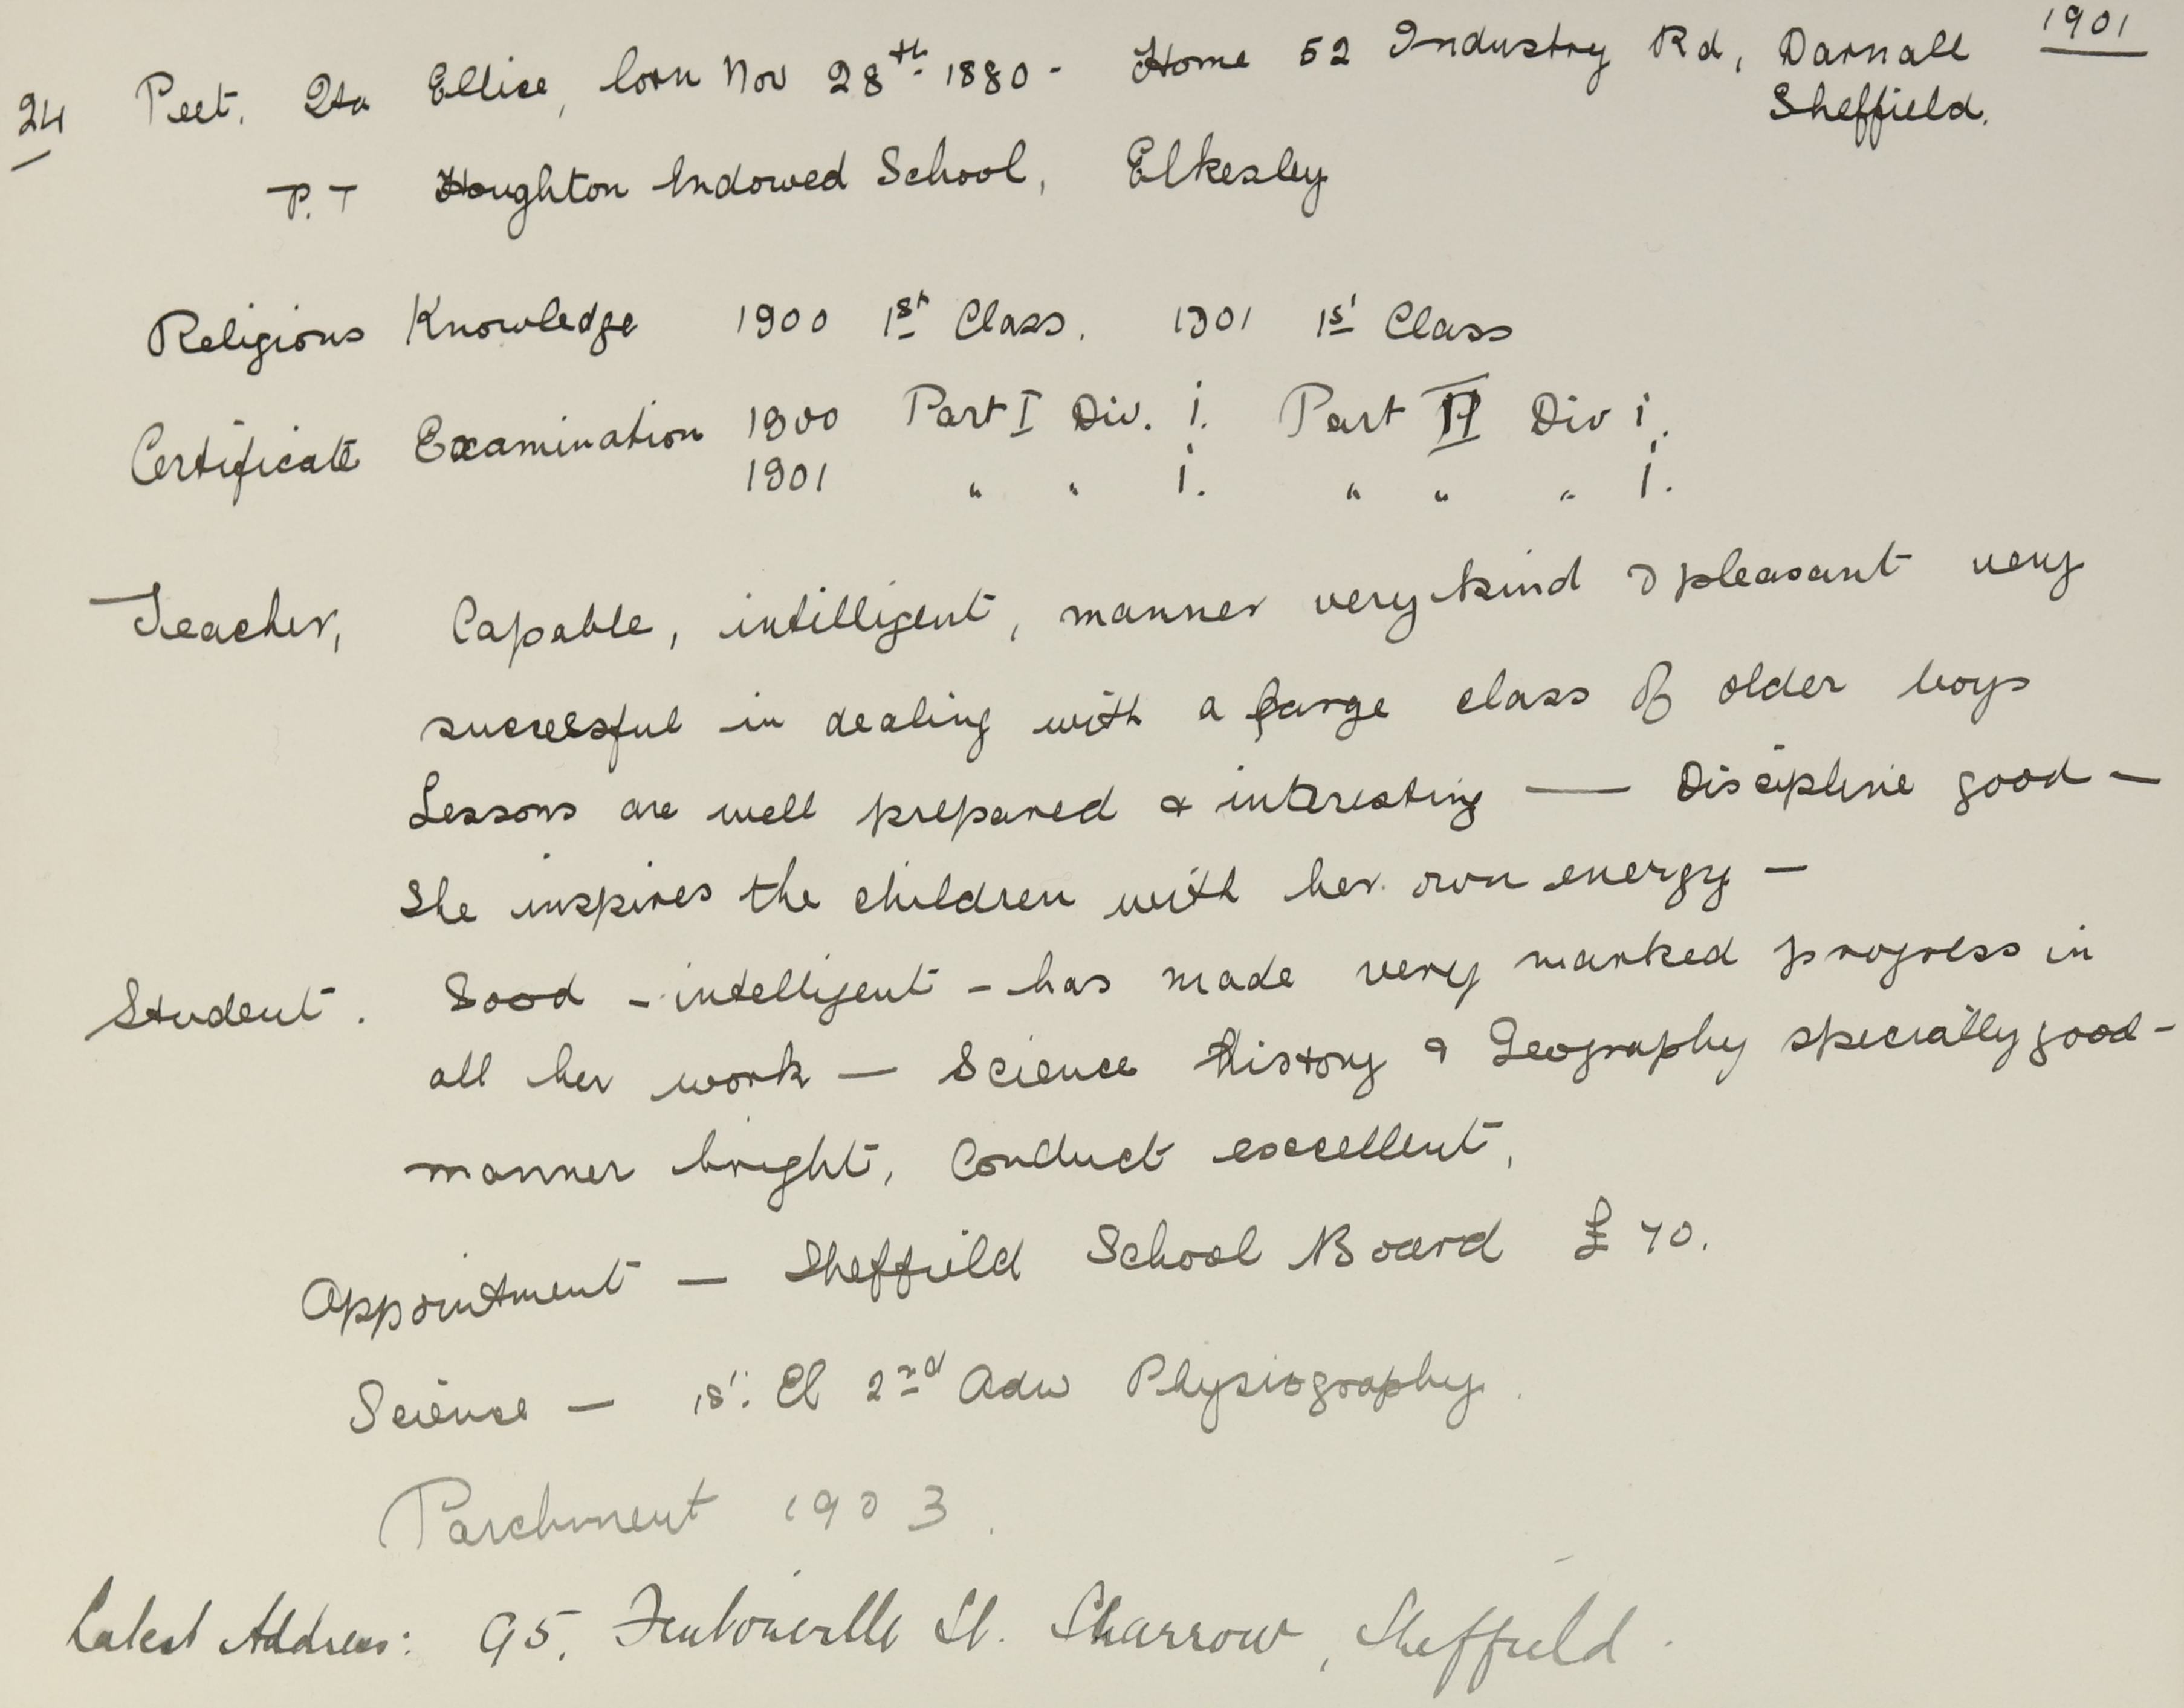 1901
24 Peet. Ita Ellice, born Nov 28th 1880 - Home 52 Industry Rd, Darnall
Sheffield.
P.T Houghton Endowed School, Elkesley
Religious Knowledge 1900 1st Class. 1901 1st Class
Certificate Examination 1900 Part I Div. i. Part II Div i.
1901 " " i. " " " i.
Teacher, Capable, intelligent, manner very kind & pleasant very
successful in dealing with a large class of older boys
Lessons are well prepared & interesting — Discipline good —
She inspires the children with her own energy —
Student. Good - intelligent - has made very marked progress in
all her work — Science History & Geography specially good -
manner bright, Conduct excellent,
Appointment — Sheffield School Board £70.
Science — 1st El 2nd Adv Physiography.
Parchment 1903.
Latest Address: 95, Trent St. Sharrow, Sheffield.